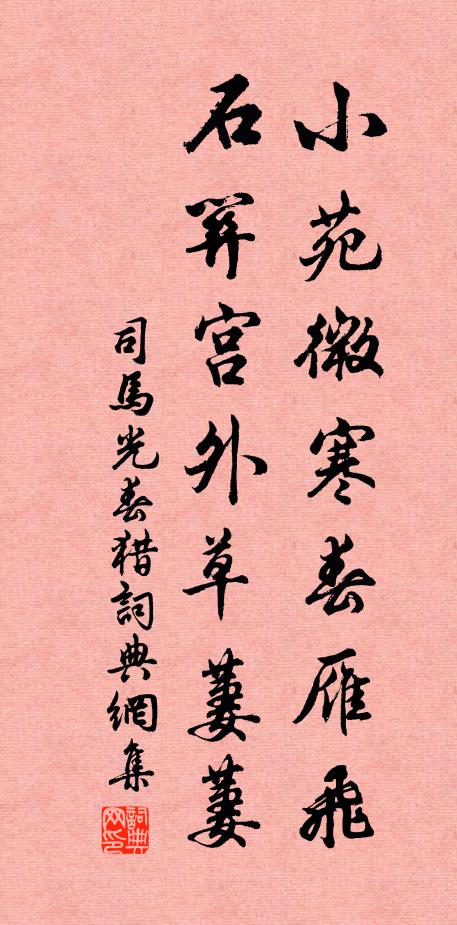 小苑微寒春雁飛
石宫外草萋萋
司馬光春猎詞典網集
詞典网印